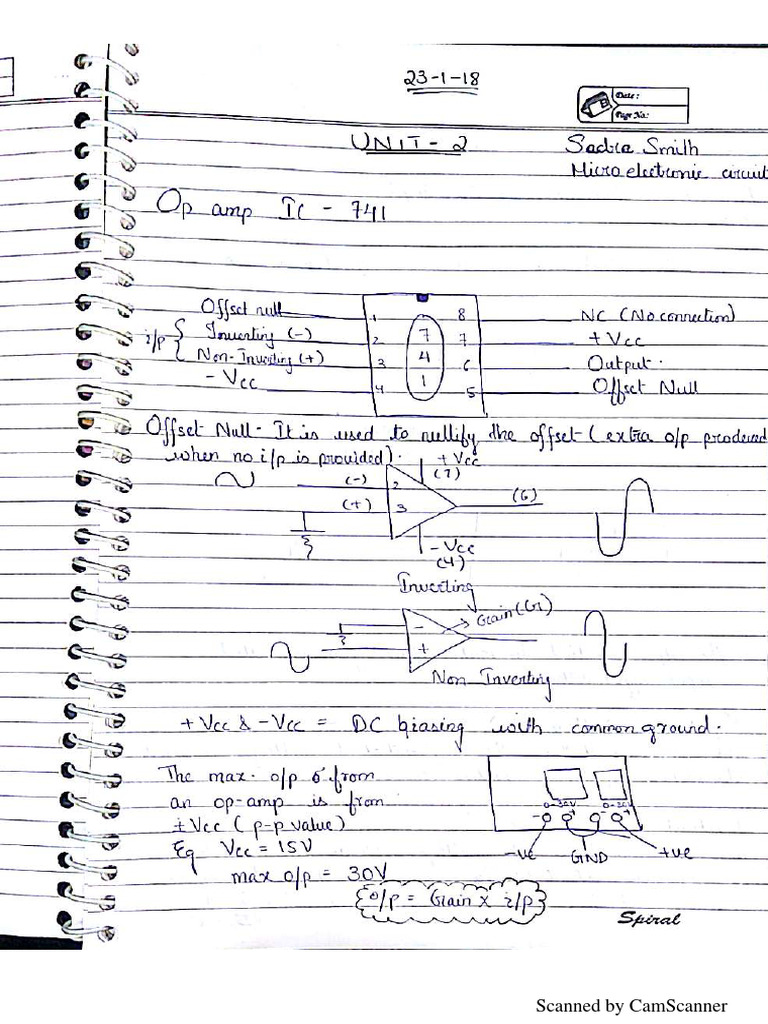 23-1-18
Date:
Page No:
UNIT-2
Sedra Smith
Microelectronic circuit
Op amp IC - 741
Offset null 1 8 NC (No connection)
i/p { Inverting (-) 2 7 7 +Vcc
Non-Inverting (+) 3 4 6 Output.
-Vcc 4 1 5 Offset Null
Offset Null - It is used to nullify the offset (extra o/p produced
when no i/p is provided).
+Vcc
(7)
(-) 2
(+) 3
(6)
-Vcc
(4)
Inverting
- Gain(G)
+
Non Inverting
+Vcc & -Vcc = DC biasing with common ground.
The max. o/p from
an op-amp is from
±Vcc (p-p value)
Eg Vcc = 15V
max o/p = 30V
0-30V 0-30V
- + - +
-ve GND +ve
o/p = Gain x i/p
Spiral
Scanned by CamScanner